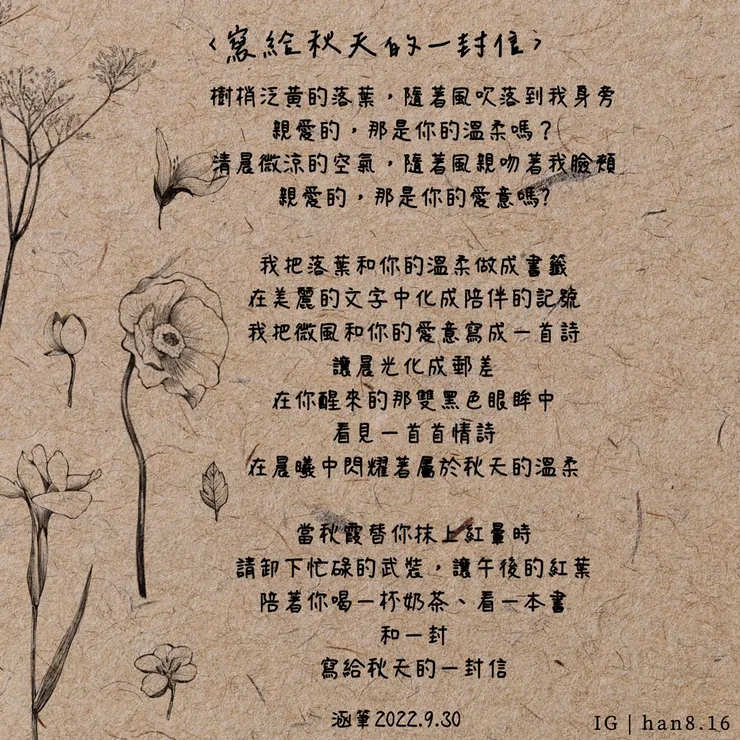 〈寫給秋天的一封信〉
樹梢泛黃的落葉，隨著風吹落到我身旁
親愛的，那是你的溫柔嗎？
清晨微涼的空氣，隨著風親吻著我臉頰
親愛的，那是你的愛意嗎?
我把落葉和你的溫柔做成書籤
在美麗的文字中化成陪伴的記號
我把微風和你的愛意寫成一首詩
讓晨光化成郵差
在你醒來的那雙黑色眼眸中
看見一首首情詩
在晨曦中閃耀著屬於秋天的溫柔
當秋霞替你抹上紅暈時
請卸下忙碌的武裝，讓午後的紅葉
陪著你喝一杯奶茶、看一本書
和一封
寫給秋天的一封信
涵筆2022.9.30
IG | han8.16